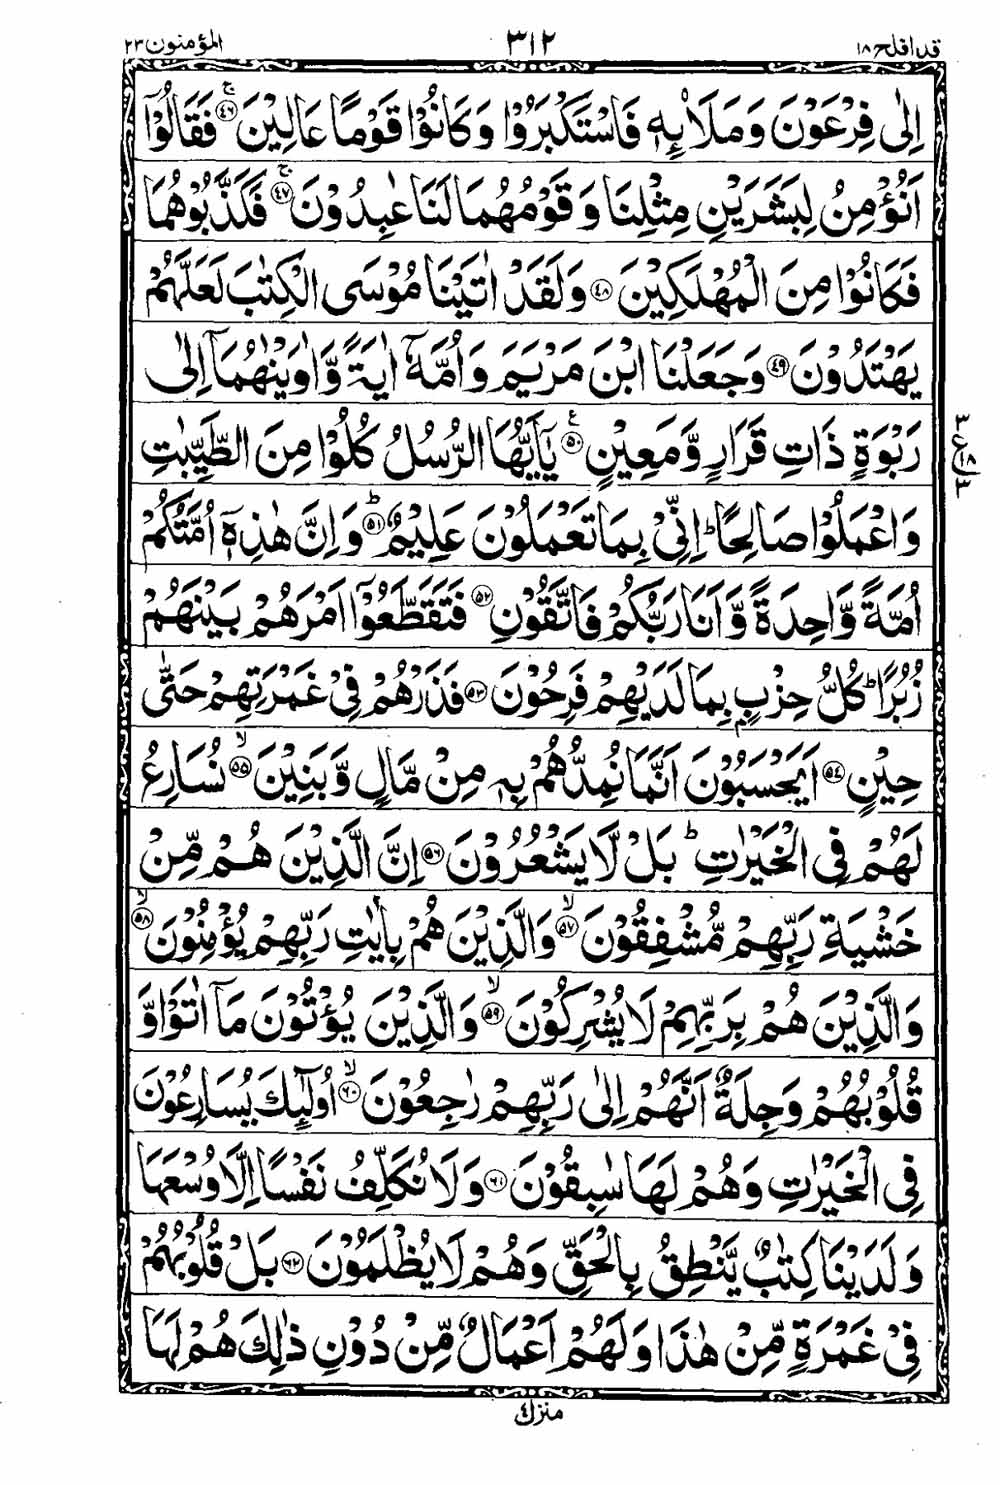 قد افلح ١٨ ٣١٢ المؤمنون ٢٣
اِلٰى فِرْعَوْنَ وَ مَلَا۟ىِٕهٖ فَاسْتَكْبَرُوْا وَ كَانُوْا قَوْمًا عَالِيْنَ ۚ﴿٤٦﴾ فَقَالُوْۤا
اَنُؤْمِنُ لِبَشَرَيْنِ مِثْلِنَا وَ قَوْمُهُمَا لَنَا عٰبِدُوْنَ ۚ﴿٤٧﴾ فَكَذَّبُوْهُمَا
فَكَانُوْا مِنَ الْمُهْلَكِيْنَ ﴿٤٨﴾ وَ لَقَدْ اٰتَيْنَا مُوْسَى الْكِتٰبَ لَعَلَّهُمْ
يَهْتَدُوْنَ ﴿٤٩﴾ وَ جَعَلْنَا ابْنَ مَرْيَمَ وَ اُمَّهٗۤ اٰيَةً وَّ اٰوَيْنٰهُمَاۤ اِلٰى
رَبْوَةٍ ذَاتِ قَرَارٍ وَّ مَعِيْنٍ ﴿٥٠﴾ ع يٰۤاَيُّهَا الرُّسُلُ كُلُوْا مِنَ الطَّيِّبٰتِ
وَ اعْمَلُوْا صَالِحًا ؕ اِنِّيْ بِمَا تَعْمَلُوْنَ عَلِيْمٌ ؕ﴿٥١﴾ وَ اِنَّ هٰذِهٖۤ اُمَّتُكُمْ
اُمَّةً وَّاحِدَةً وَّ اَنَا رَبُّكُمْ فَاتَّقُوْنِ ﴿٥٢﴾ فَتَقَطَّعُوْۤا اَمْرَهُمْ بَيْنَهُمْ
زُبُرًا ؕ كُلُّ حِزْبٍۭ بِمَا لَدَيْهِمْ فَرِحُوْنَ ﴿٥٣﴾ فَذَرْهُمْ فِيْ غَمْرَتِهِمْ حَتّٰى
حِيْنٍ ﴿٥٤﴾ اَيَحْسَبُوْنَ اَنَّمَا نُمِدُّهُمْ بِهٖ مِنْ مَّالٍ وَّ بَنِيْنَ ۙ﴿٥٥﴾ نُسَارِعُ
لَهُمْ فِي الْخَيْرٰتِ ؕ بَلْ لَّا يَشْعُرُوْنَ ﴿٥٦﴾ اِنَّ الَّذِيْنَ هُمْ مِّنْ
خَشْيَةِ رَبِّهِمْ مُّشْفِقُوْنَ ۙ﴿٥٧﴾ وَ الَّذِيْنَ هُمْ بِاٰيٰتِ رَبِّهِمْ يُؤْمِنُوْنَ ۙ﴿٥٨﴾
وَ الَّذِيْنَ هُمْ بِرَبِّهِمْ لَا يُشْرِكُوْنَ ۙ﴿٥٩﴾ وَ الَّذِيْنَ يُؤْتُوْنَ مَاۤ اٰتَوْا وَّ
قُلُوْبُهُمْ وَجِلَةٌ اَنَّهُمْ اِلٰى رَبِّهِمْ رٰجِعُوْنَ ۙ﴿٦٠﴾ اُولٰٓىِٕكَ يُسَارِعُوْنَ
فِي الْخَيْرٰتِ وَ هُمْ لَهَا سٰبِقُوْنَ ﴿٦١﴾ وَ لَا نُكَلِّفُ نَفْسًا اِلَّا وُسْعَهَا
وَ لَدَيْنَا كِتٰبٌ يَّنْطِقُ بِالْحَقِّ وَ هُمْ لَا يُظْلَمُوْنَ ﴿٦٢﴾ بَلْ قُلُوْبُهُمْ
فِيْ غَمْرَةٍ مِّنْ هٰذَا وَ لَهُمْ اَعْمَالٌ مِّنْ دُوْنِ ذٰلِكَ هُمْ لَهَا
منزل ٤